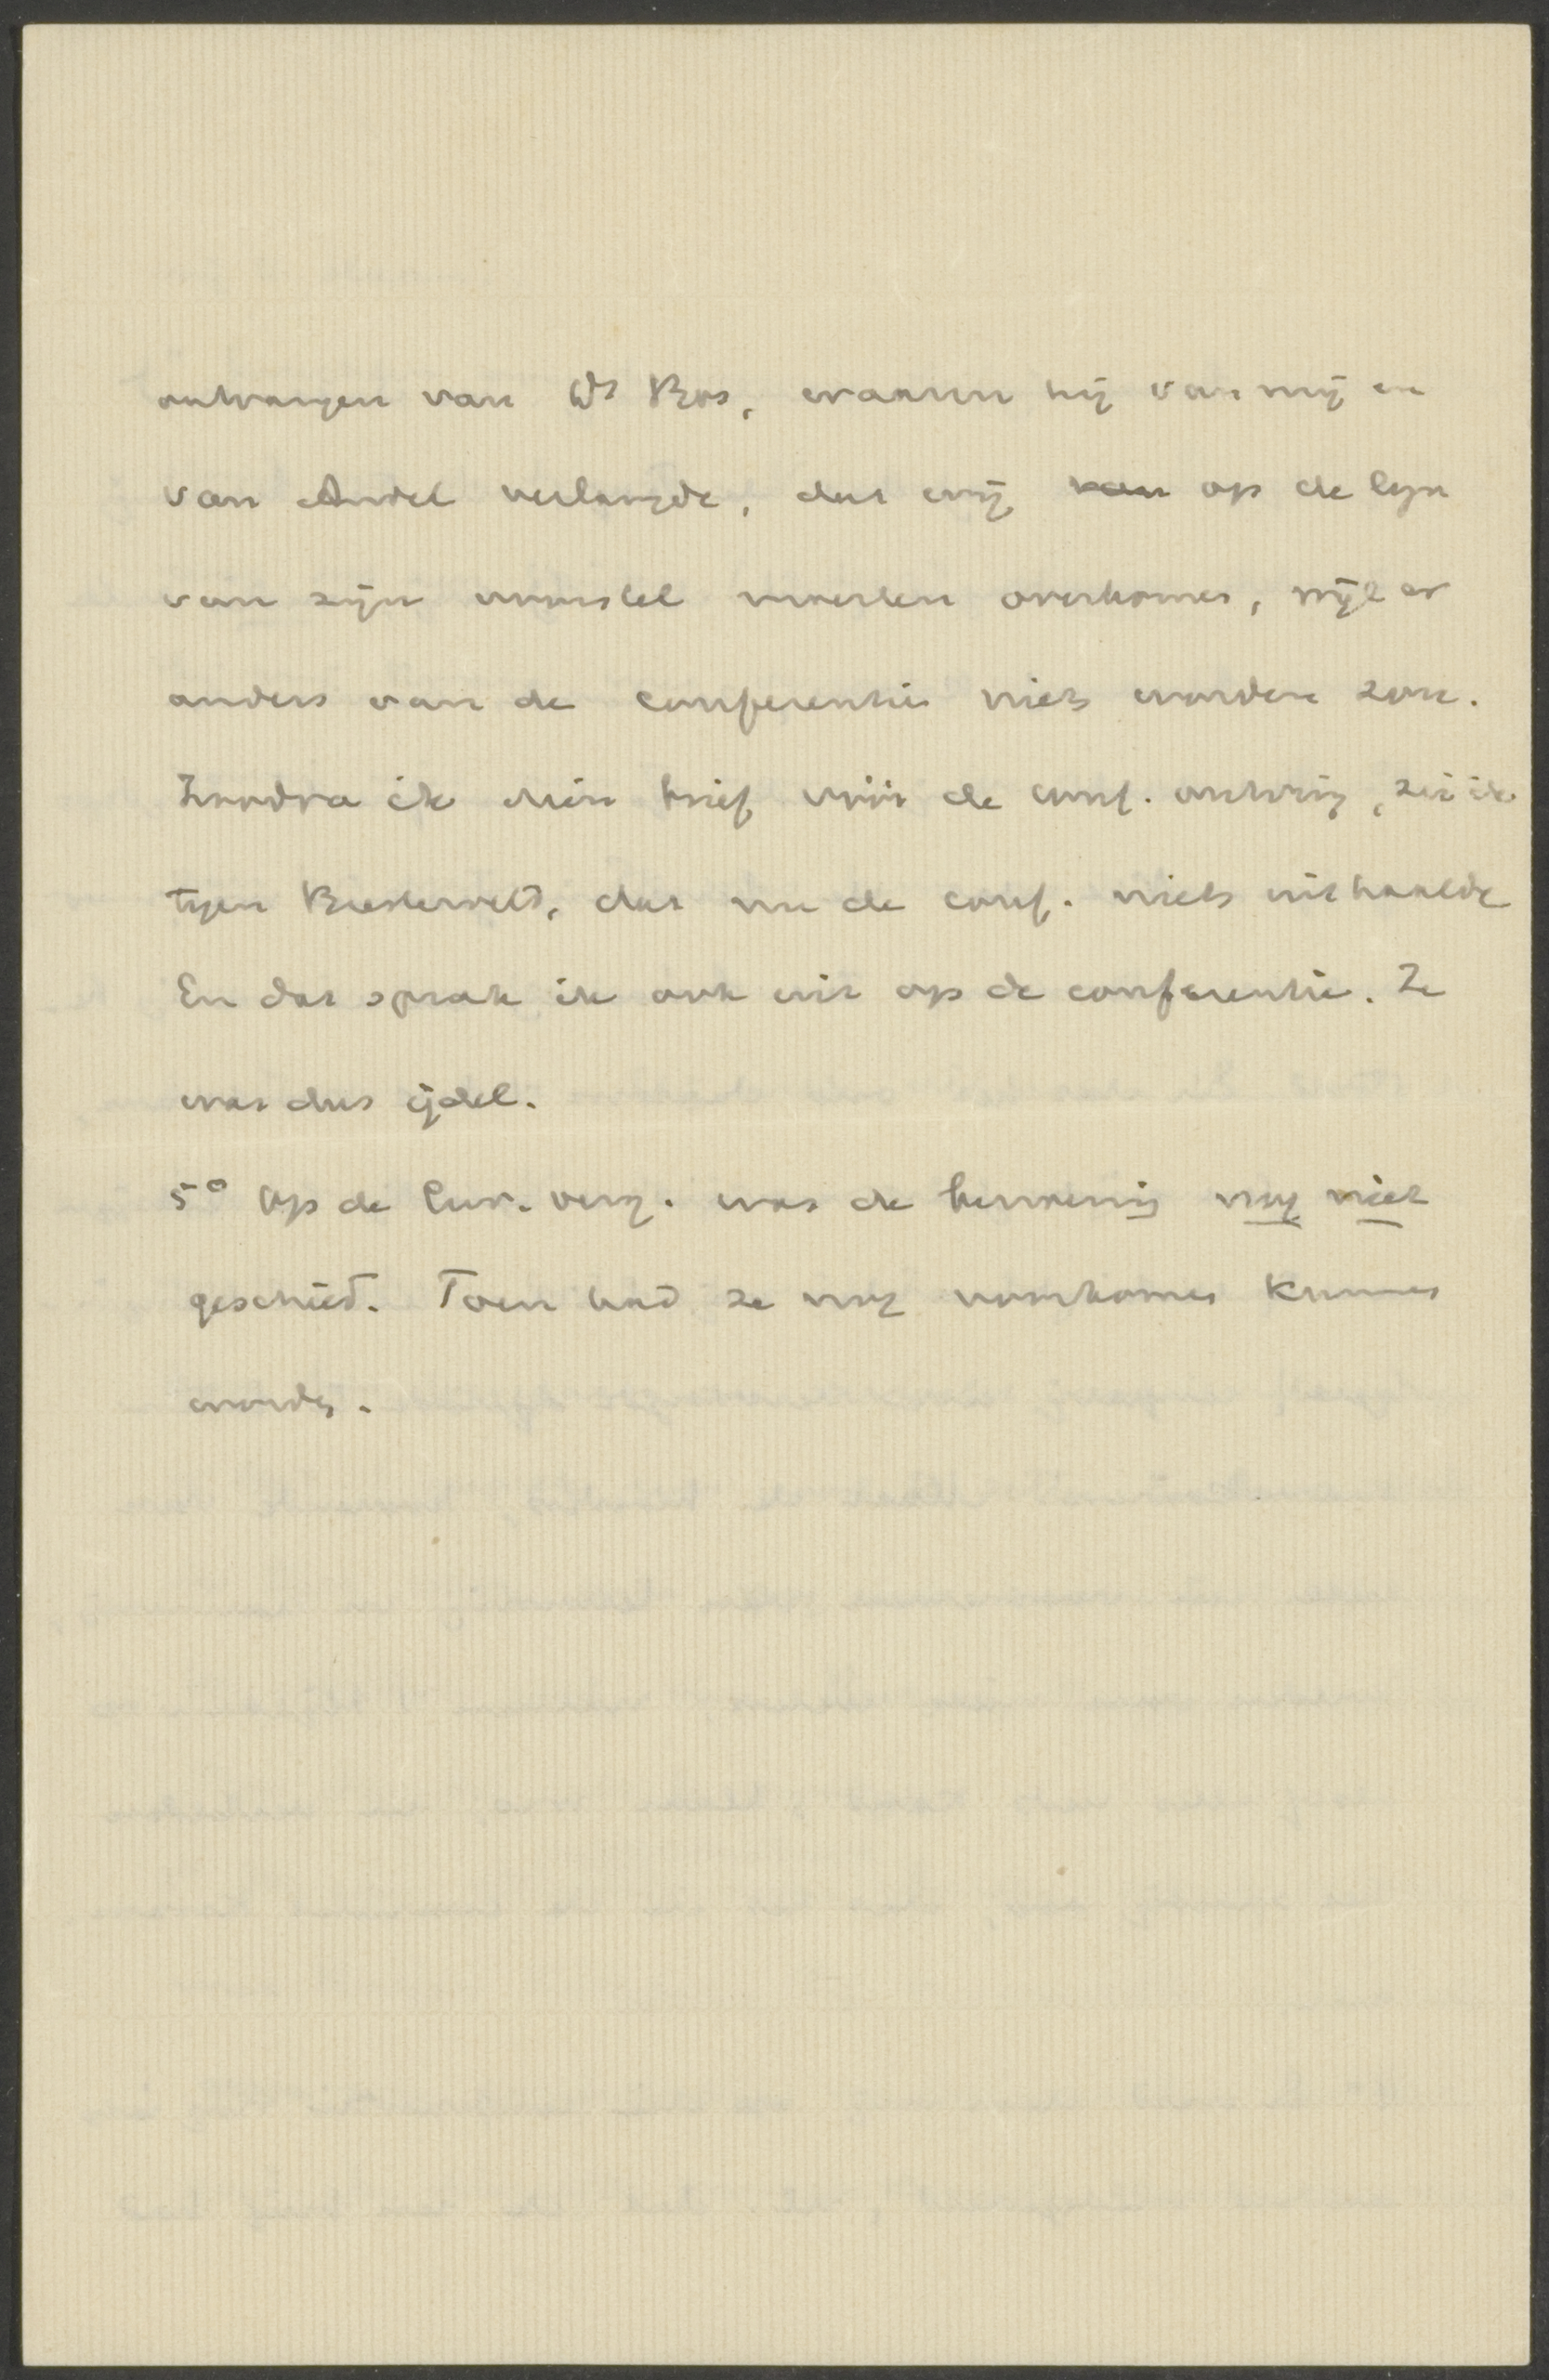 ontvangen van Ds Bos, waarin hij van mij en
van Andel verlangde, dat wij van op de lijn
van zijn voorstel moesten overkomen, wijl er
anders van de conferentie niets worden zou.
Zoodra ik dien brief vóór de conf. ontving, zei ik
tegen Biesterveld, dat nu de conf. niets uithaalde
En dat sprak ik ook uit op de conferentie. Ze
was dus ijdel.
5° Op de Cur. verg. was de benoeming nog niet
geschied. Toen had ze nog voorkomen kunnen
worden.